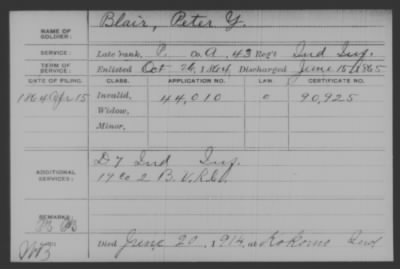 Blair, Peter Y.
NAME OF SOLDIER:
SERVICE: Late rank, P. Co A, 43 Reg't Ind Inf.
TERM OF SERVICE: Enlisted Oct 26, 1864, Discharged June 15, 1865
DATE OF FILING. CLASS. APPLICATION NO. LAW. CERTIFICATE NO.
Apr 15 Invalid, 44,010 o 90,925
Widow,
Minor,
ADDITIONAL SERVICES: D 7 Ind Inf.
17 Co 2 B.
REMARKS:
Died June 20, 1914, at Kokomo Ind